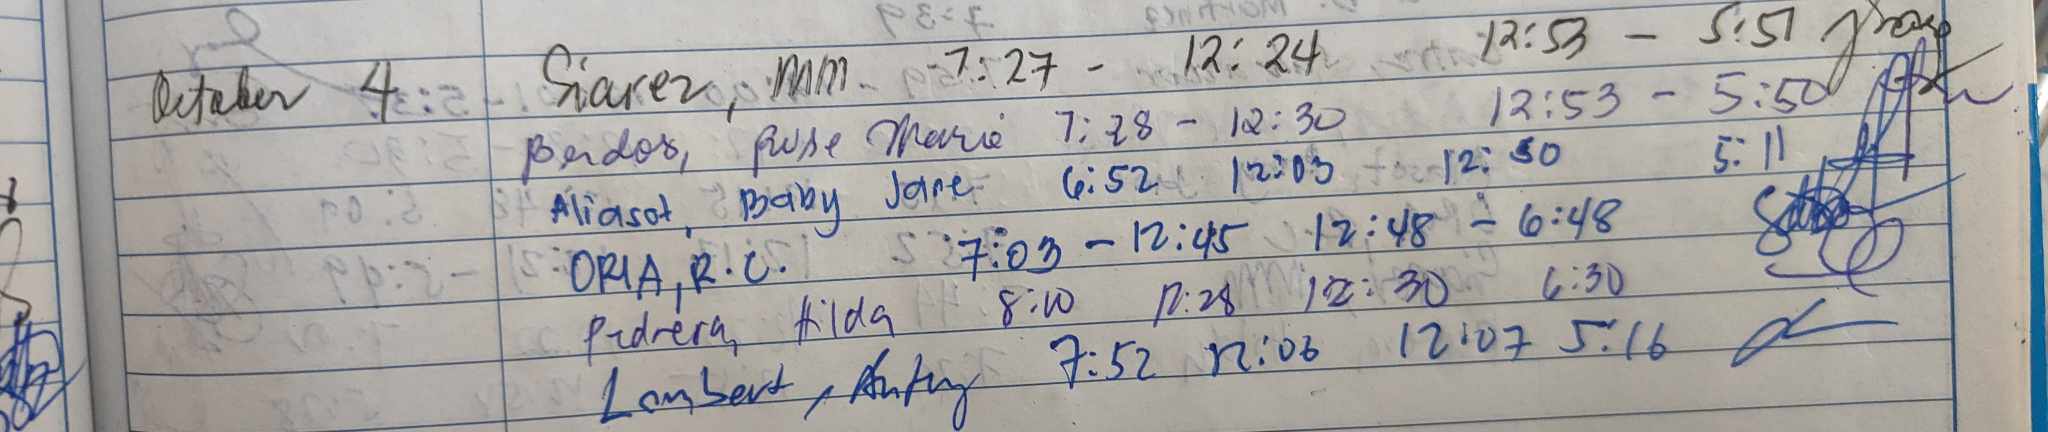 October 4 Siarez, MM. 7:27 - 12:24 12:53 - 5:51
Berdos, Rose Marie 7:28 - 12:30 12:53 - 5:50
Aliasot, Baby Jane 6:52 12:03 12:50 5:11
ORIA, R.C. 7:03 - 12:45 12:48 - 6:48
Pedrera, Hilda 8:10 12:28 12:30 6:30
Lambert, 7:52 12:06 12:07 5:16